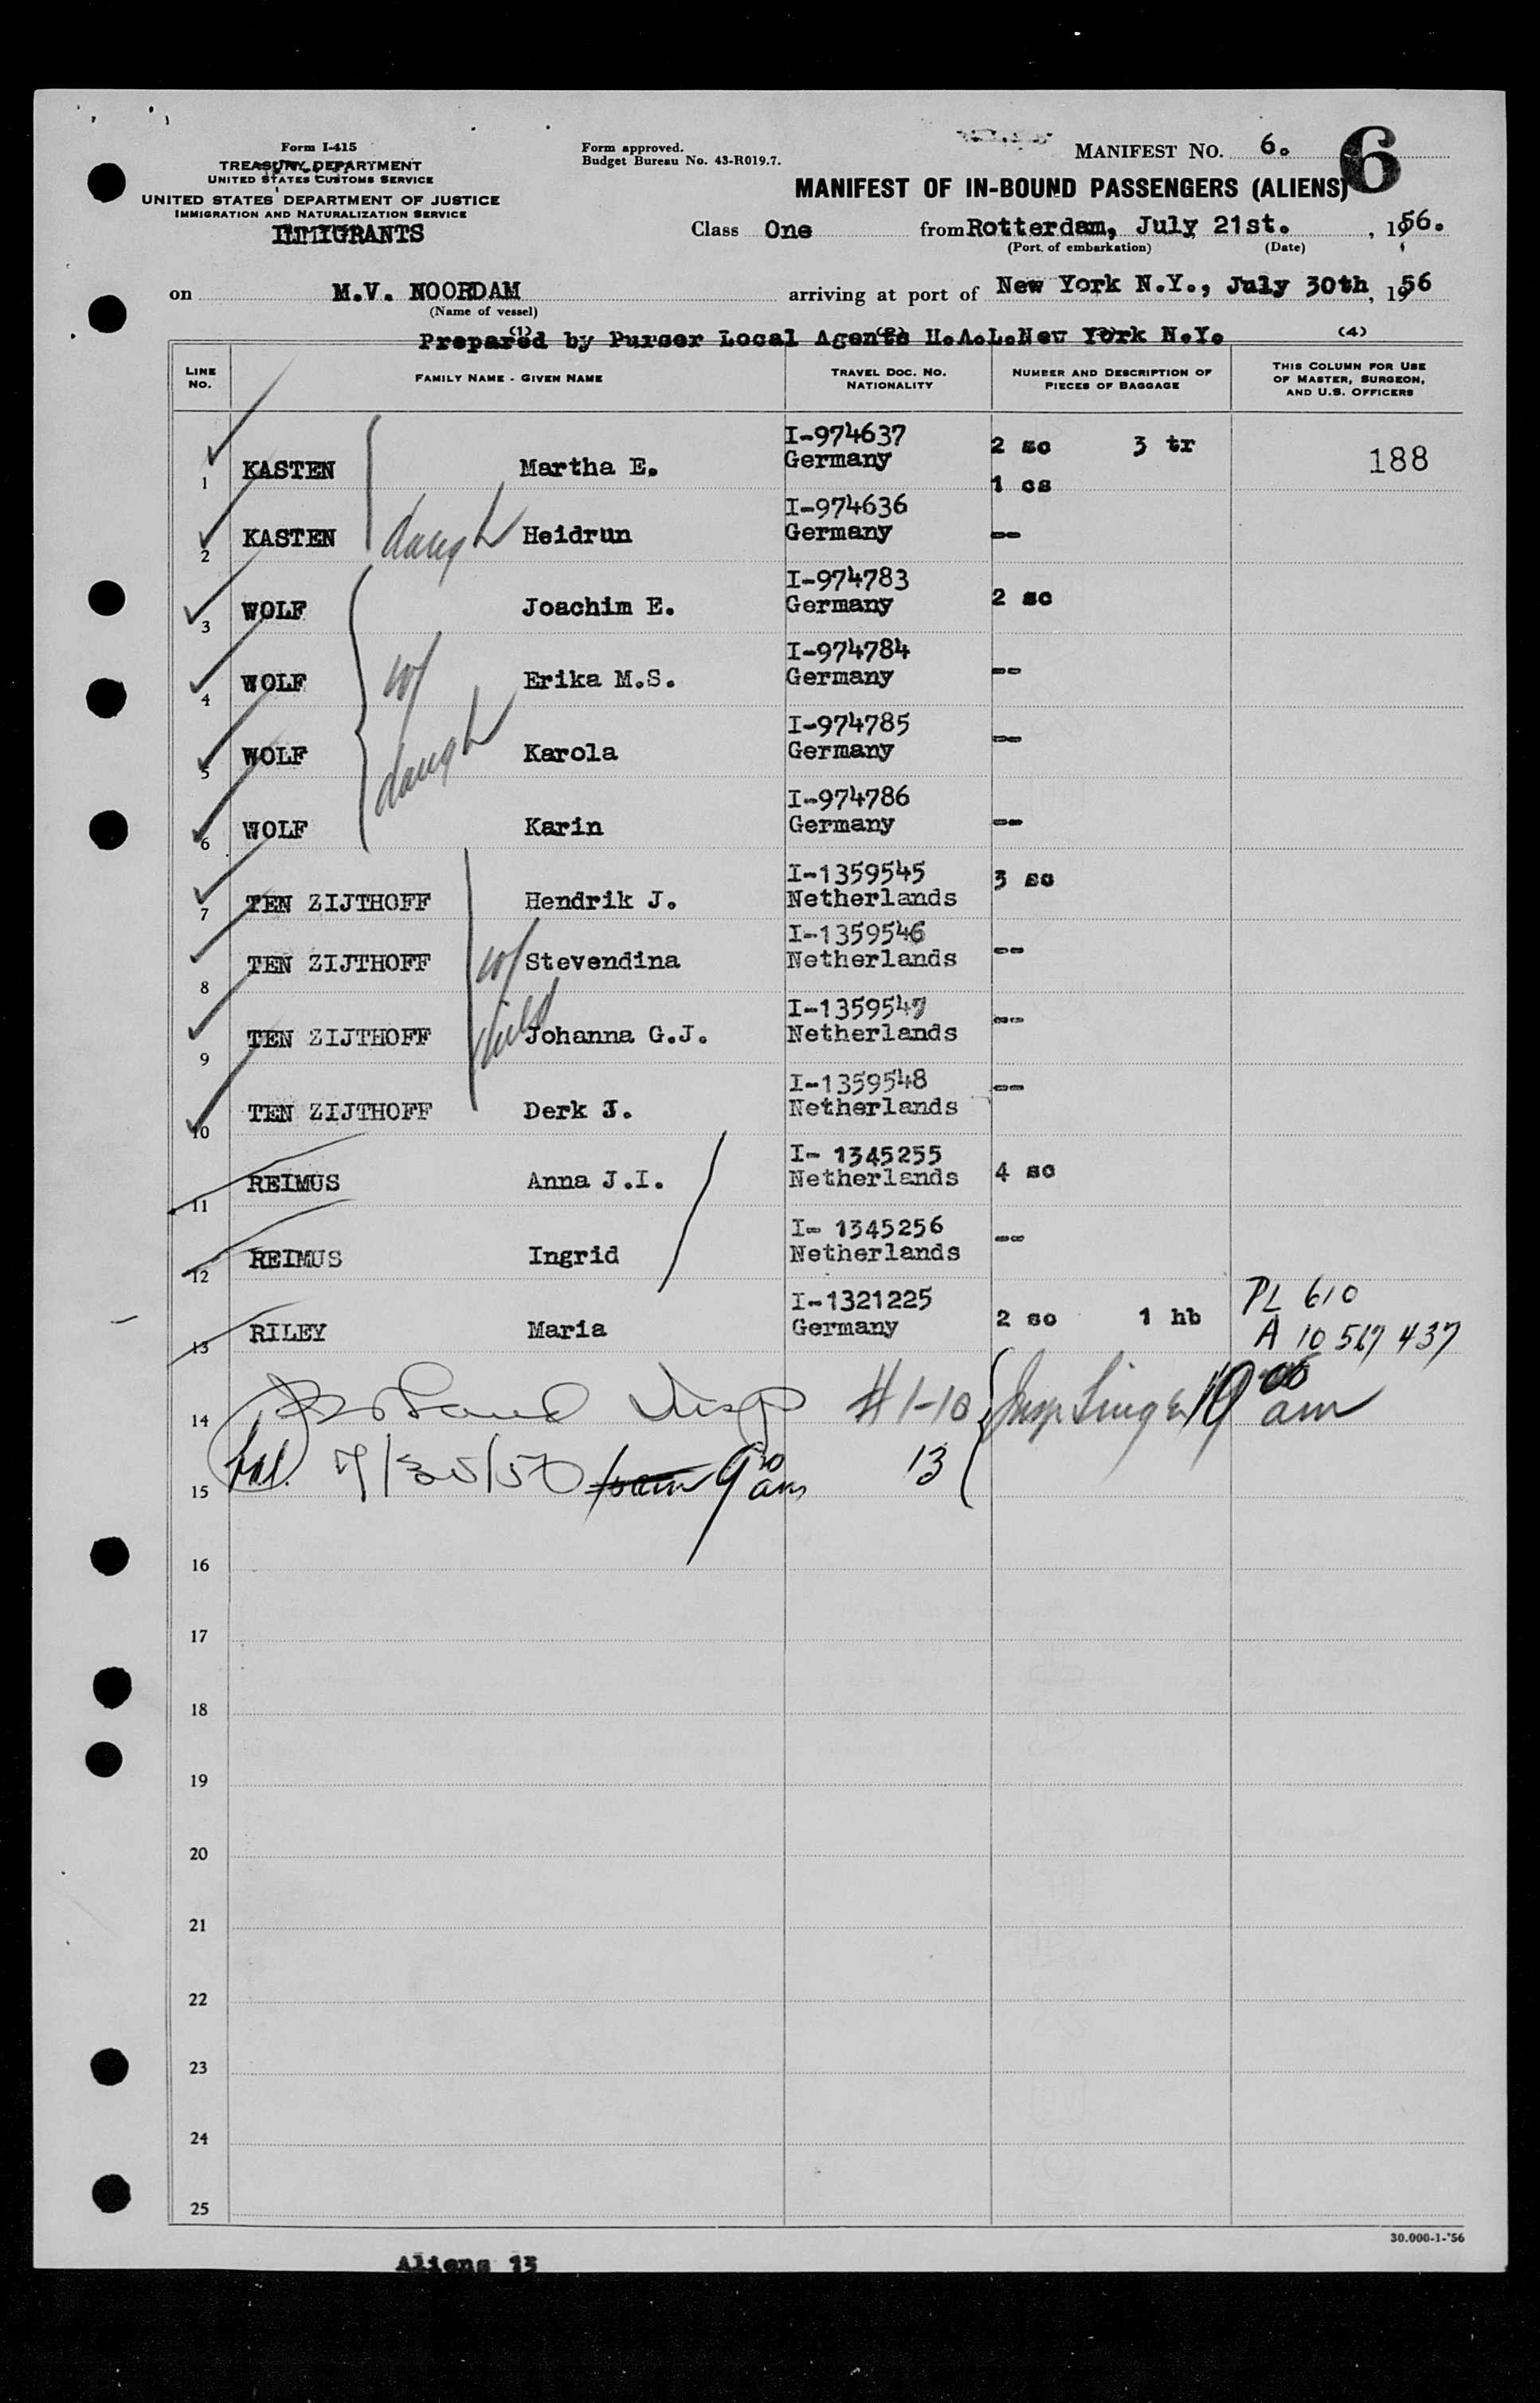 Form I-415
TREASURY DEPARTMENT
UNITED STATES CUSTOMS SERVICE
UNITED STATES DEPARTMENT OF JUSTICE
IMMIGRATION AND NATURALIZATION SERVICE
IMMIGRANTS
Form approved.
Budget Bureau No. 43-R019.7.
MANIFEST NO. 6. 6
MANIFEST OF IN-BOUND PASSENGERS (ALIENS)
Class One from Rotterdam, July 21st. , 1956.
(Port of embarkation) (Date)
on M.V. NOORDAM arriving at port of New York N.Y., July 30th, 1956
(Name of vessel)
Prepared by Purser Local Agents H.A.L. New York N.Y.
(1) (2) (3) (4)
LINE NO. FAMILY NAME - GIVEN NAME TRAVEL DOC. NO. NATIONALITY NUMBER AND DESCRIPTION OF PIECES OF BAGGAGE THIS COLUMN FOR USE OF MASTER, SURGEON, AND U.S. OFFICERS
1 KASTEN Martha E. I-974637 Germany 2 sc 3 tr 1 cs 188
2 KASTEN daugh Heidrun I-974636 Germany --
3 WOLF Joachim E. I-974783 Germany 2 sc
4 WOLF w/ Erika M.S. I-974784 Germany --
5 WOLF daugh Karola I-974785 Germany --
6 WOLF Karin I-974786 Germany --
7 TEN ZIJTHOFF Hendrik J. I-1359545 Netherlands 3 sc
8 TEN ZIJTHOFF w/ Stevendina I-1359546 Netherlands --
9 TEN ZIJTHOFF child Johanna G.J. I-1359547 Netherlands --
10 TEN ZIJTHOFF Derk J. I-1359548 Netherlands --
11 REIMUS Anna J.I. I- 1345255 Netherlands 4 sc
12 REIMUS Ingrid I- 1345256 Netherlands --
13 RILEY Maria I-1321225 Germany 2 sc 1 hb PL 610 A 10 567 437
14 Insp #1-10 Insp Singer 10 00 am
15 bal. 7/30/56 9 30 am 13
16
17
18
19
20
21
22
23
24
25
30.000-1-'56
Aliens 13